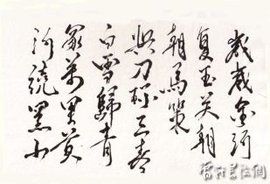 歲歲金河
復玉关朝
朝馬策
與刀环三春
白雪歸青
冢萬里黄
河繞黑山